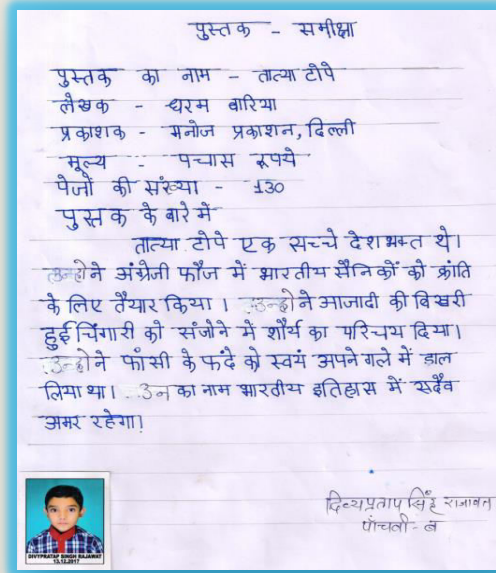 पुस्तक - समीक्षा
पुस्तक का नाम - तात्या टोपे
लेखक - धरम बारिया
प्रकाशक - मनोज प्रकाशन, दिल्ली
मूल्य - पचास रूपये
पेजों की संख्या - 130
पुस्तक के बारे में
तात्या टोपे एक सच्चे देशभक्त थे।
उन्होने अंग्रेजी फौज में भारतीय सैनिकों को क्रांति
के लिए तैयार किया। उन्होने आजादी की बिखरी
हुई चिंगारी को संजोने में शौर्य का परिचय दिया।
उन्होने फाँसी के फंदे को स्वयं अपने गले में डाल
लिया था। उन का नाम भारतीय इतिहास में सदैव
अमर रहेगा।
दिव्यप्रताप सिंह राजावत
पाँचवी - ब
DIVYPRATAP SINGH RAJAWAT
13.12.2017